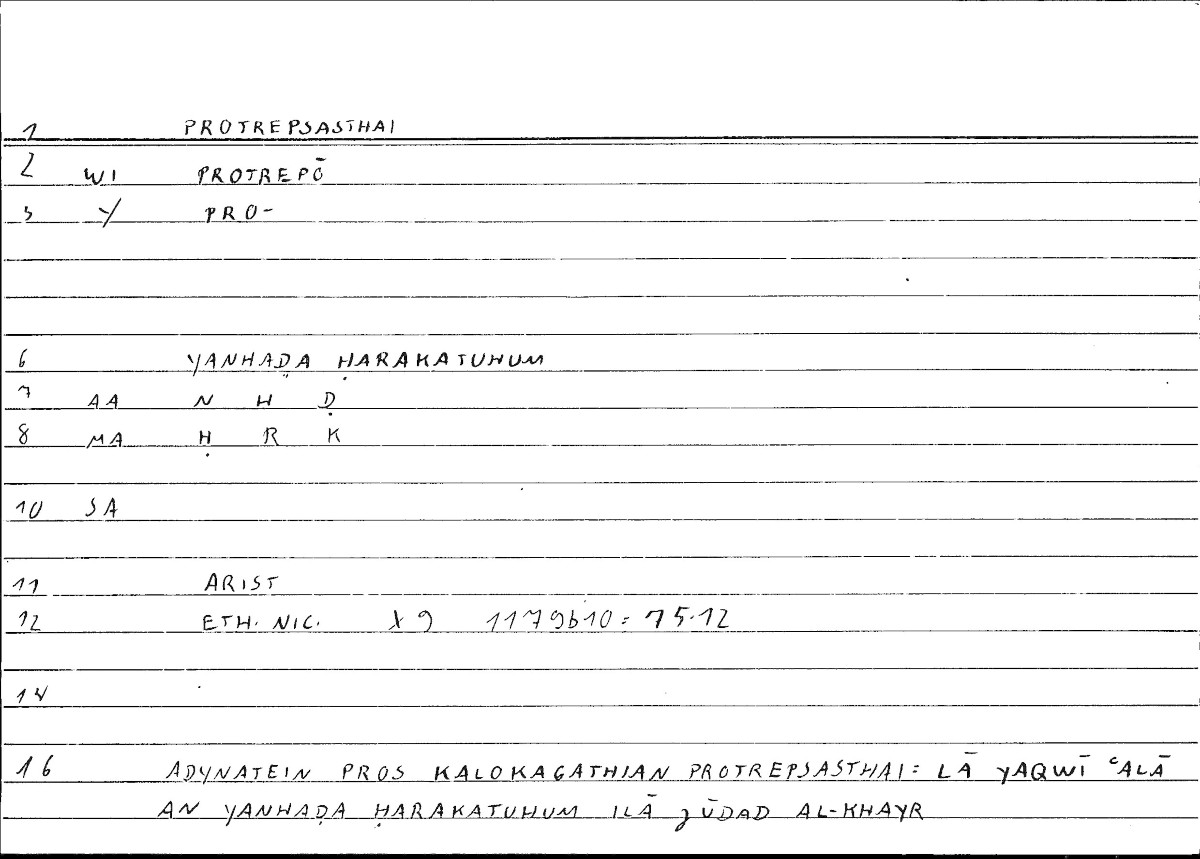 1 PROTREPSASTHAI
2 WI PROTREPŌ
3 Y PRO-
6 YANHAḌA ḤARAKATUHUM
7 AA N H Ḍ
8 MA Ḥ R K
10 SA
11 ARIST
12 ETH. NIC. X 9 1179b10 = 75.12
14
16 ADYNATEIN PROS KALOKAGATHIAN PROTREPSASTHAI = LĀ YAQWĪ ʿALĀ
AN YANHAḌA ḤARAKATUHUM ILĀ ǧŪDAD AL-KHAYR